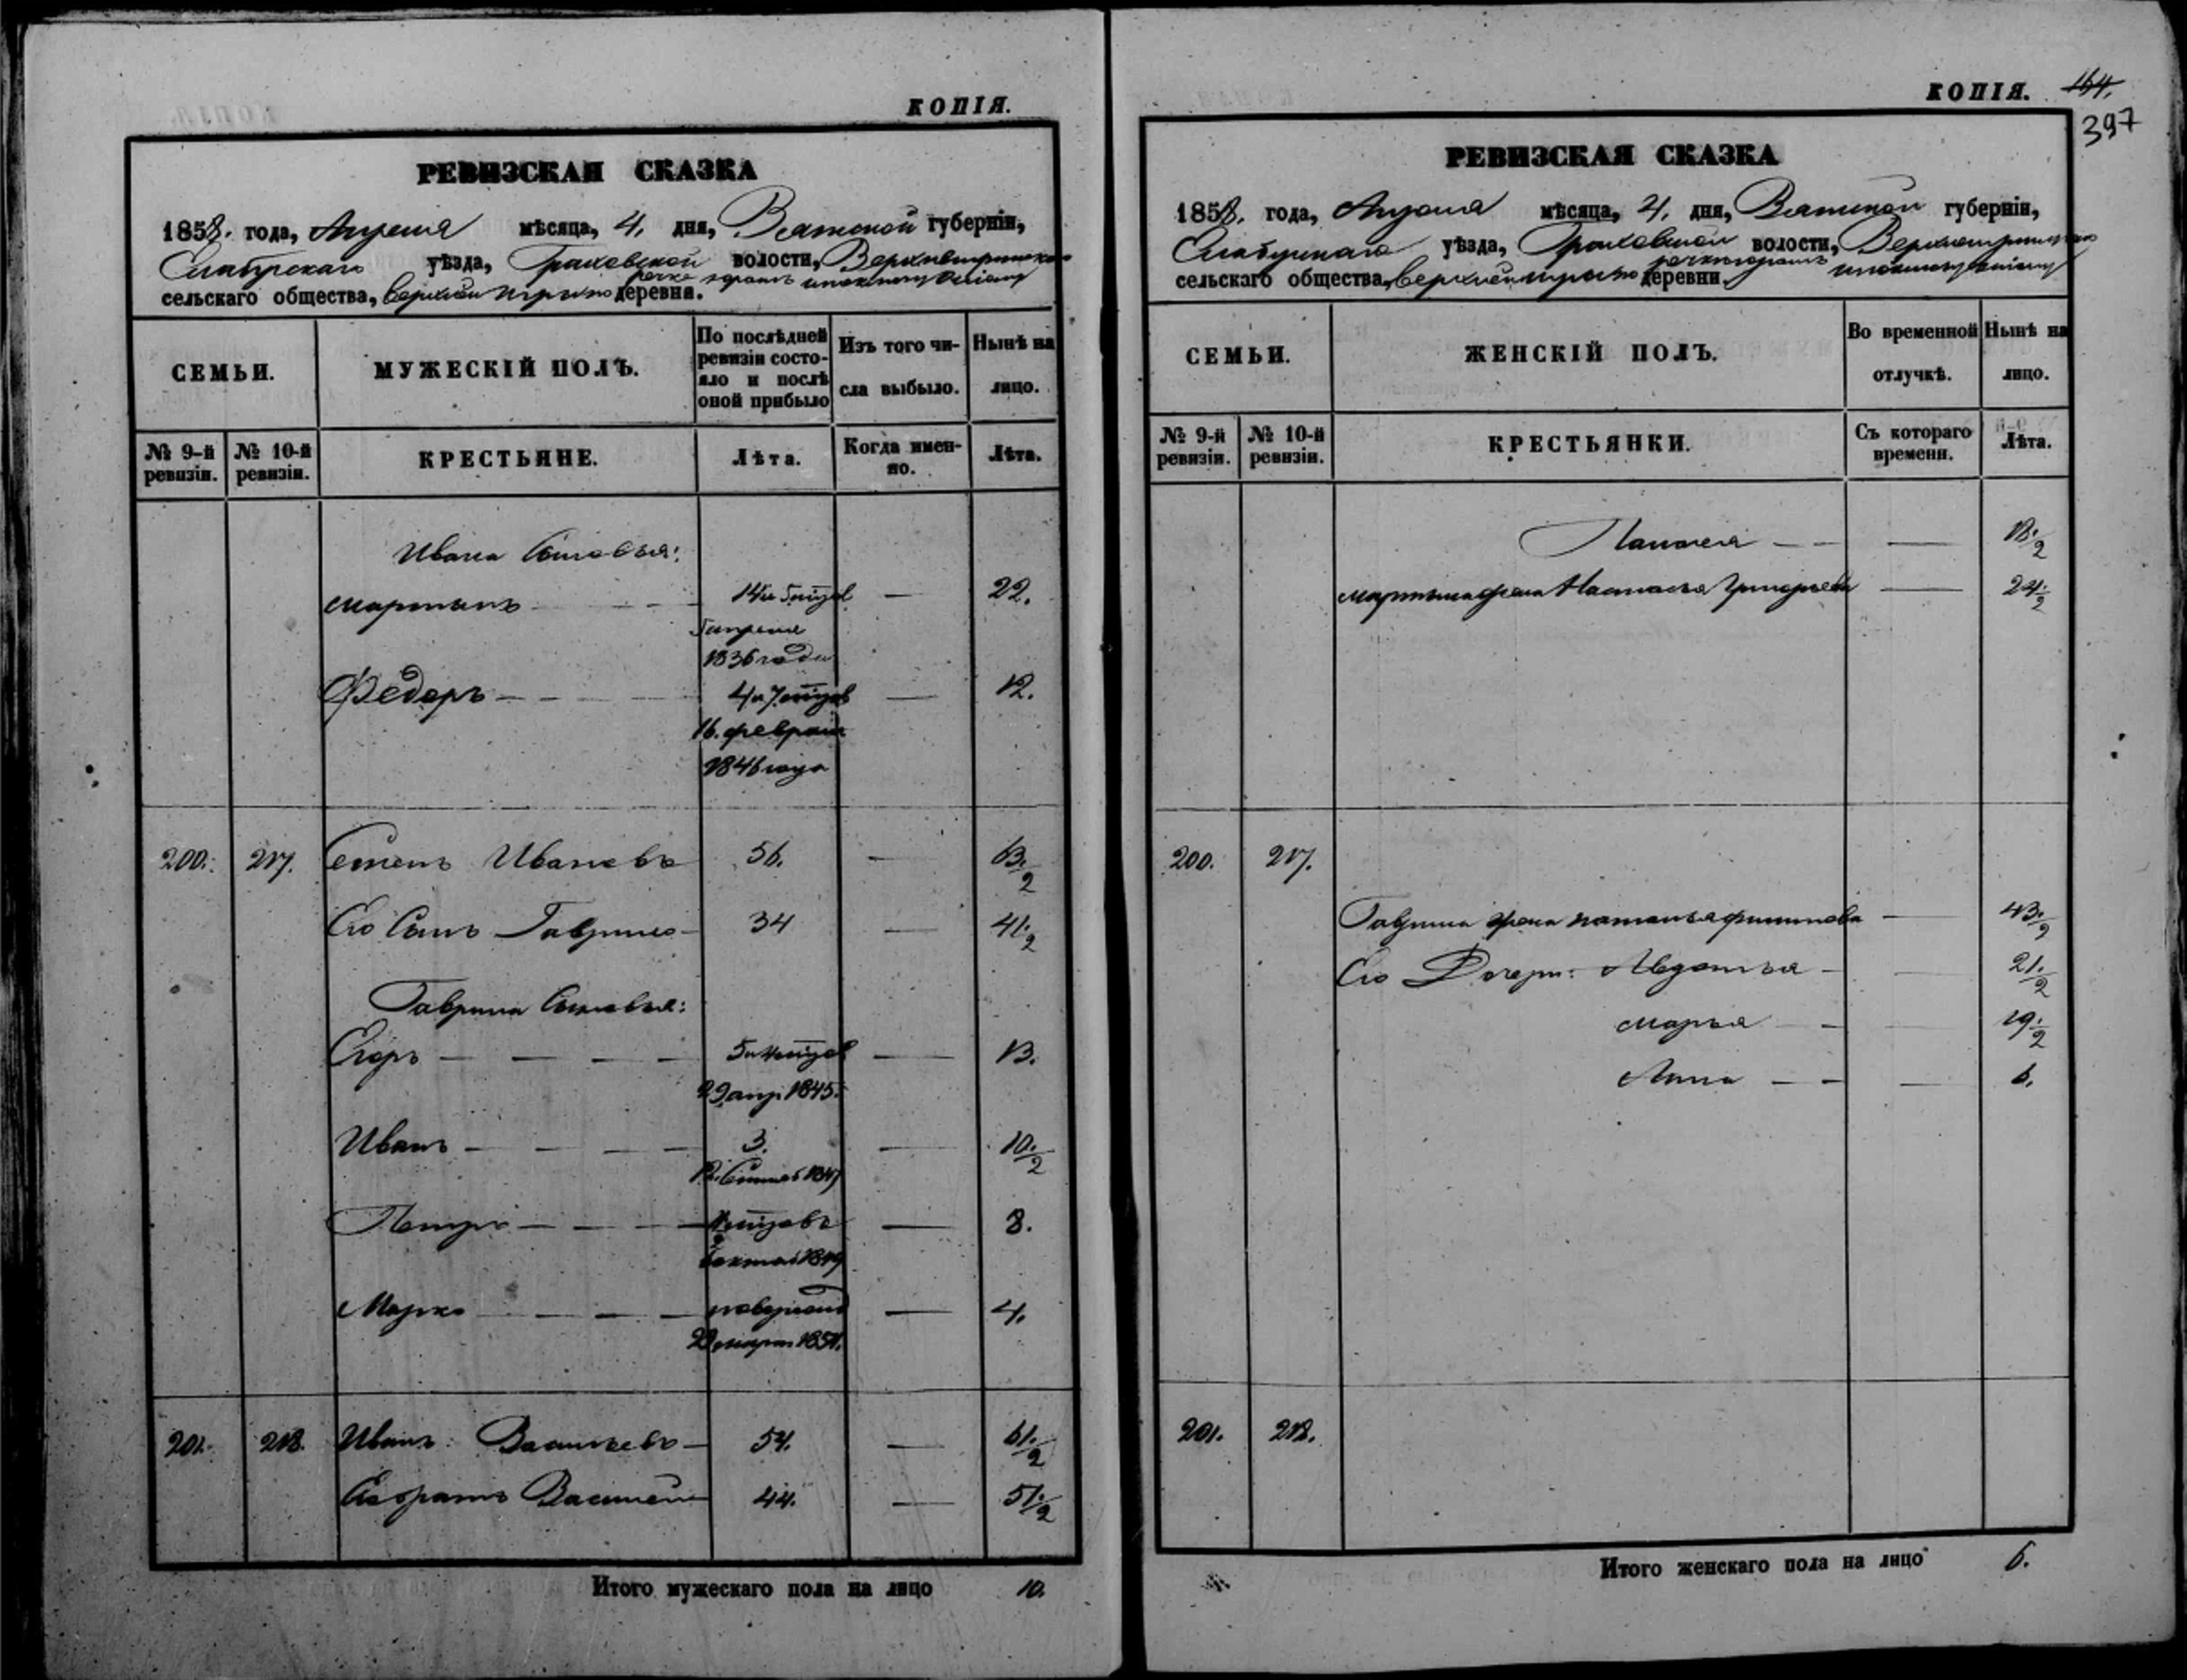 КОПІЯ.
РЕВИЗСКАЯ СКАЗКА
1858. года, Апреля мѣсяца, 4. дня, Вятской губерніи,
Елабугскаго уѣзда, Граховской волости,
сельскаго общества, деревни.
СЕМЬИ.
МУЖЕСКІЙ ПОЛЪ.
По послѣдней ревизіи состояло и послѣ оной прибыло
Изъ того числа выбыло.
Нынѣ на лицо.
№ 9-й ревизіи.
№ 10-й ревизіи.
КРЕСТЬЯНЕ.
Лѣта.
Когда именно.
Лѣта.
Ивана Сыновья:
Мартынъ 22.
1836 года
Федоръ 12.
16. февраля
1846 года
200. 217. Семенъ Ивановъ 56. 63.½
Его Сынъ Гаврило 34 41.½
Гаврила Сыновья:
Егоръ 13.
29 апр 1845.
Иванъ 3. 10.½
Петръ 8.
Марко 4.
201. 218. Иванъ Васильевъ 54. 61.½
Его братъ Василей 44. 51.½
Итого мужескаго пола на лицо 10.
КОПІЯ. 164.
397
РЕВИЗСКАЯ СКАЗКА
1858. года, Апреля мѣсяца, 4. дня, Вятской губерніи,
Елабугскаго уѣзда, Граховской волости,
сельскаго общества, деревни.
СЕМЬИ.
ЖЕНСКІЙ ПОЛЪ.
Во временной отлучкѣ.
Нынѣ на лицо.
№ 9-й ревизіи.
№ 10-й ревизіи.
КРЕСТЬЯНКИ.
Съ котораго времени.
Лѣта.
18.½
Мартына жена Настасья Григорьева 24½
200. 217.
Гаврила жена Наталья Филипова 43.½
Его Дочери: Авдотья 21.½
Марья 19.½
Анна 6.
201. 218.
Итого женскаго пола на лицо 6.